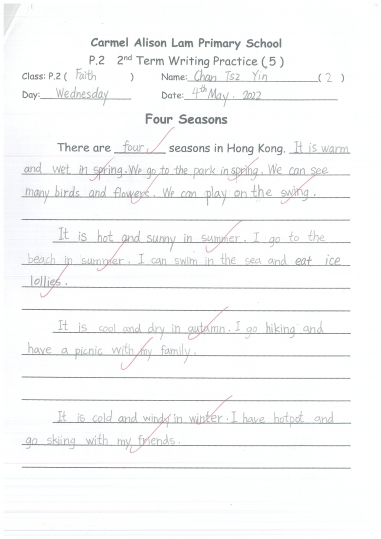 Carmel Alison Lam Primary School
P.2 2nd Term Writing Practice (5)
Class: P.2 ( Faith ) Name: Chan Tsz Yin ( 2 )
Day: Wednesday Date: 4th May. 2022
Four Seasons
There are four seasons in Hong Kong. It is warm
and wet in spring. We go to the park in spring. We can see
many birds and flowers. We can play on the swing.
It is hot and sunny in summer. I go to the
beach in summer. I can swim in the sea and eat ice
lollies.
It is cool and dry in autumn. I go hiking and
have a picnic with my family.
It is cold and windy in winter. I have hotpot and
go skiing with my friends.